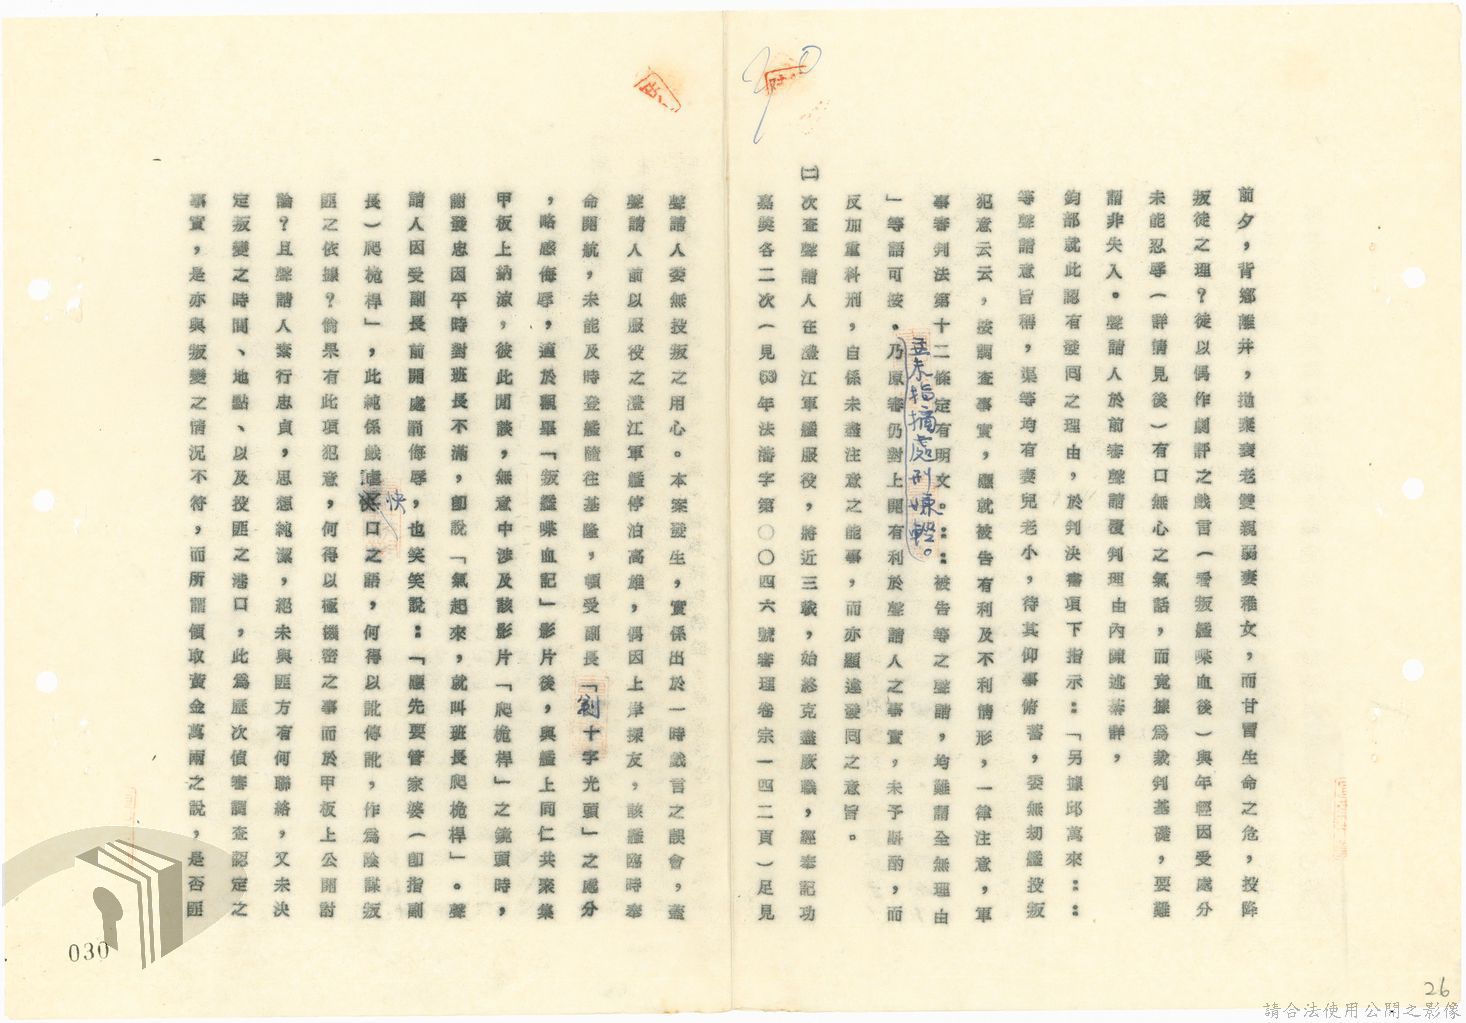 前夕，背鄉離井，拋棄衰老雙親弱妻稚女，而甘冒生命之危，投降
叛徒之理？徒以偶作劇評之戲言（看叛艦喋血後）與年輕因受處分
未能忍辱（詳情見後）有口無心之氣話，而竟據爲裁判基礎，要難
謂非失入。聲請人於前審聲請覆判理由內陳述綦詳，
鈞部就此認有發回之理由，於判決書項下指示：「另據邱萬來：：
等聲請意旨稱，渠等均有妻兒老小，待其仰事俯蓄，委無刼艦投叛
犯意云云，按調查事實，應就被告有利及不利情形，一律注意，軍
事審判法第十二條定有明文。：：被告等之聲請，均難謂全無理由
」等語可按。乃原審仍對上開有利於聲請人之事實，未予斟酌，而
並未指摘處刑嫌輕。
反加重科刑，自係未盡注意之能事，而亦顯違發回之意旨。
㈡次查聲請人在澧江軍艦服役，將近三載，始終克盡厥職，經奉記功
嘉獎各二次（見(53)年法審字第〇〇四六號審理卷宗一四二頁）足見
聲請人委無投叛之用心。本案發生，實係出於一時戲言之誤會，蓋
聲請人前以服役之澧江軍艦停泊高雄，偶因上岸探友，該艦臨時奉
命開航，未能及時登艦隨往基隆，頓受副長「劉十字光頭」之處分
，略感侮辱，適於觀畢「叛艦喋血記」影片後，與艦上同仁共聚集
甲板上納涼，彼此閒談，無意中涉及該影片「爬桅桿」之鏡頭時，
謝發忠因平時對班長不滿，卽說「氣起來，就叫班長爬桅桿」。聲
請人因受副長前開處罰侮辱，也笑笑說：「應先要管家婆（卽指副
長）爬桅桿」，此純係戲謔快口之語，何得以訛傳訛，作爲陰謀叛
快
匪之依據？倘果有此項犯意，何得以極機密之事而於甲板上公開討
論？且聲請人素行忠貞，思想純潔，絕未與匪方有何聯絡，又未決
定叛變之時間、地點、以及投匪之港口，此爲歷次偵審調查認定之
事實，是亦與叛變之情況不符，而所謂領取黃金萬兩之說，是否匪
030
26
請合法使用公開之影像